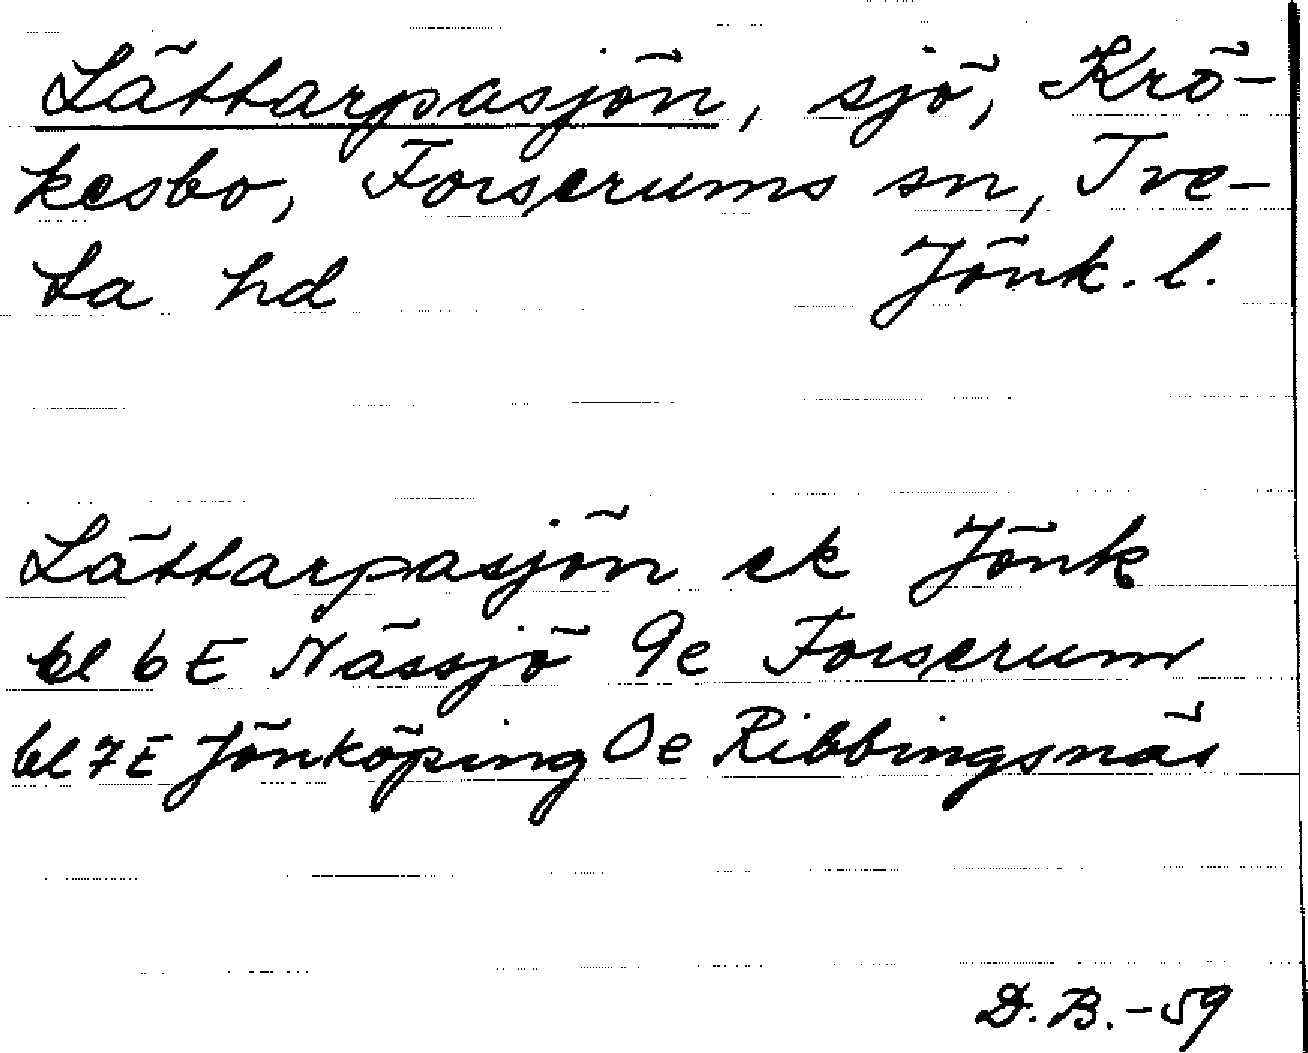 Lättarpasjön, sjö, Krö-
kesbo, Forserums sn, Tve-
ta hd Jönk. l.
Lättarpasjön ek Jönk
bl 6 E Nässjö 9e Forserum
bl 7 E Jönköping 0e Ribbingsnäs
D. B. -59